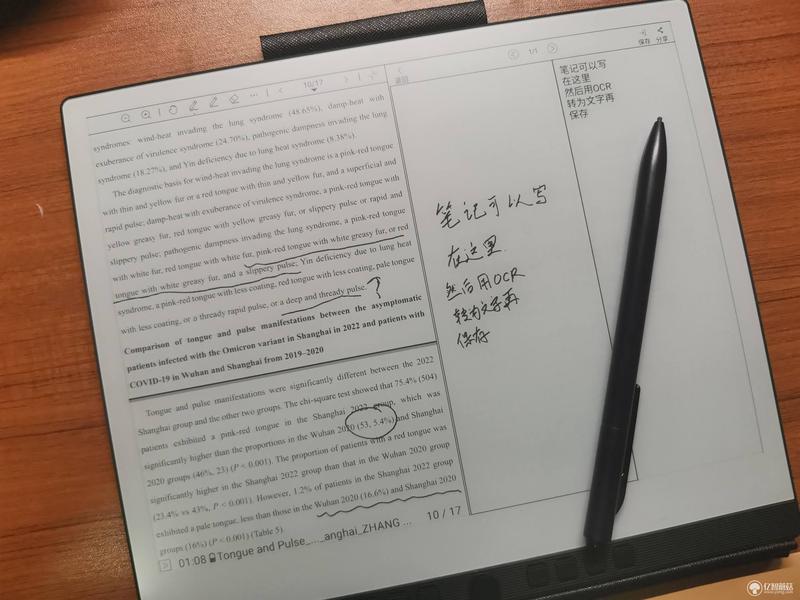 10/17
syndromes: wind-heat invading the lung syndrome (48.65%), damp-heat with
exuberance of virulence syndrome (24.70%), pathogenic dampness invading the lung
syndrome (18.27%), and Yin deficiency due to lung heat syndrome (8.38%).
The diagnostic basis for wind-heat invading the lung syndrome is a pink-red tongue
with thin and yellow fur or a red tongue with thin and yellow fur, and a superficial and
rapid pulse; damp-heat with exuberance of virulence syndrome, a pink-red tongue with
yellow greasy fur, red tongue with yellow greasy fur, or slippery pulse or rapid and
slippery pulse; pathogenic dampness invading the lung syndrome, a pink-red tongue
with white fur, red tongue with white fur, pink-red tongue with white greasy fur, or red
tongue with white greasy fur, and a slippery pulse; Yin deficiency due to lung heat
syndrome, a pink-red tongue with less coating, red tongue with less coating, pale tongue
with less coating, or a thready rapid pulse, or a deep and thready pulse. ?
Comparison of tongue and pulse manifestations between the asymptomatic
patients infected with the Omicron variant in Shanghai in 2022 and patients with
COVID-19 in Wuhan and Shanghai from 2019–2020
Tongue and pulse manifestations were significantly different between the 2022
Shanghai group and the other two groups. The chi-square test showed that 75.4% (504)
patients exhibited a pink-red tongue in the Shanghai 2022 group, which was
significantly higher than the proportions in the Wuhan 2020 (53, 5.4%) and Shanghai
2020 groups (46%, 23) (P < 0.001). The proportion of patients with a red tongue was
significantly higher in the Shanghai 2022 group than that in the Wuhan 2020 group
(23.4% vs 43%, P < 0.001). However, 1.2% of patients in the Shanghai 2022 group
exhibited a pale tongue, less than those in the Wuhan 2020 (16.6%) and Shanghai 2020
groups (16%) (P < 0.001) (Table 5).
01:08 Tongue and Pulse_..._anghai_ZHANG ... 10 / 17
1/1
保存 分享
笔记可以写
在这里
然后用OCR
转为文字再
保存
笔记可以写
在这里
然后用OCR
转为文字再
保存
亿智蘑菇